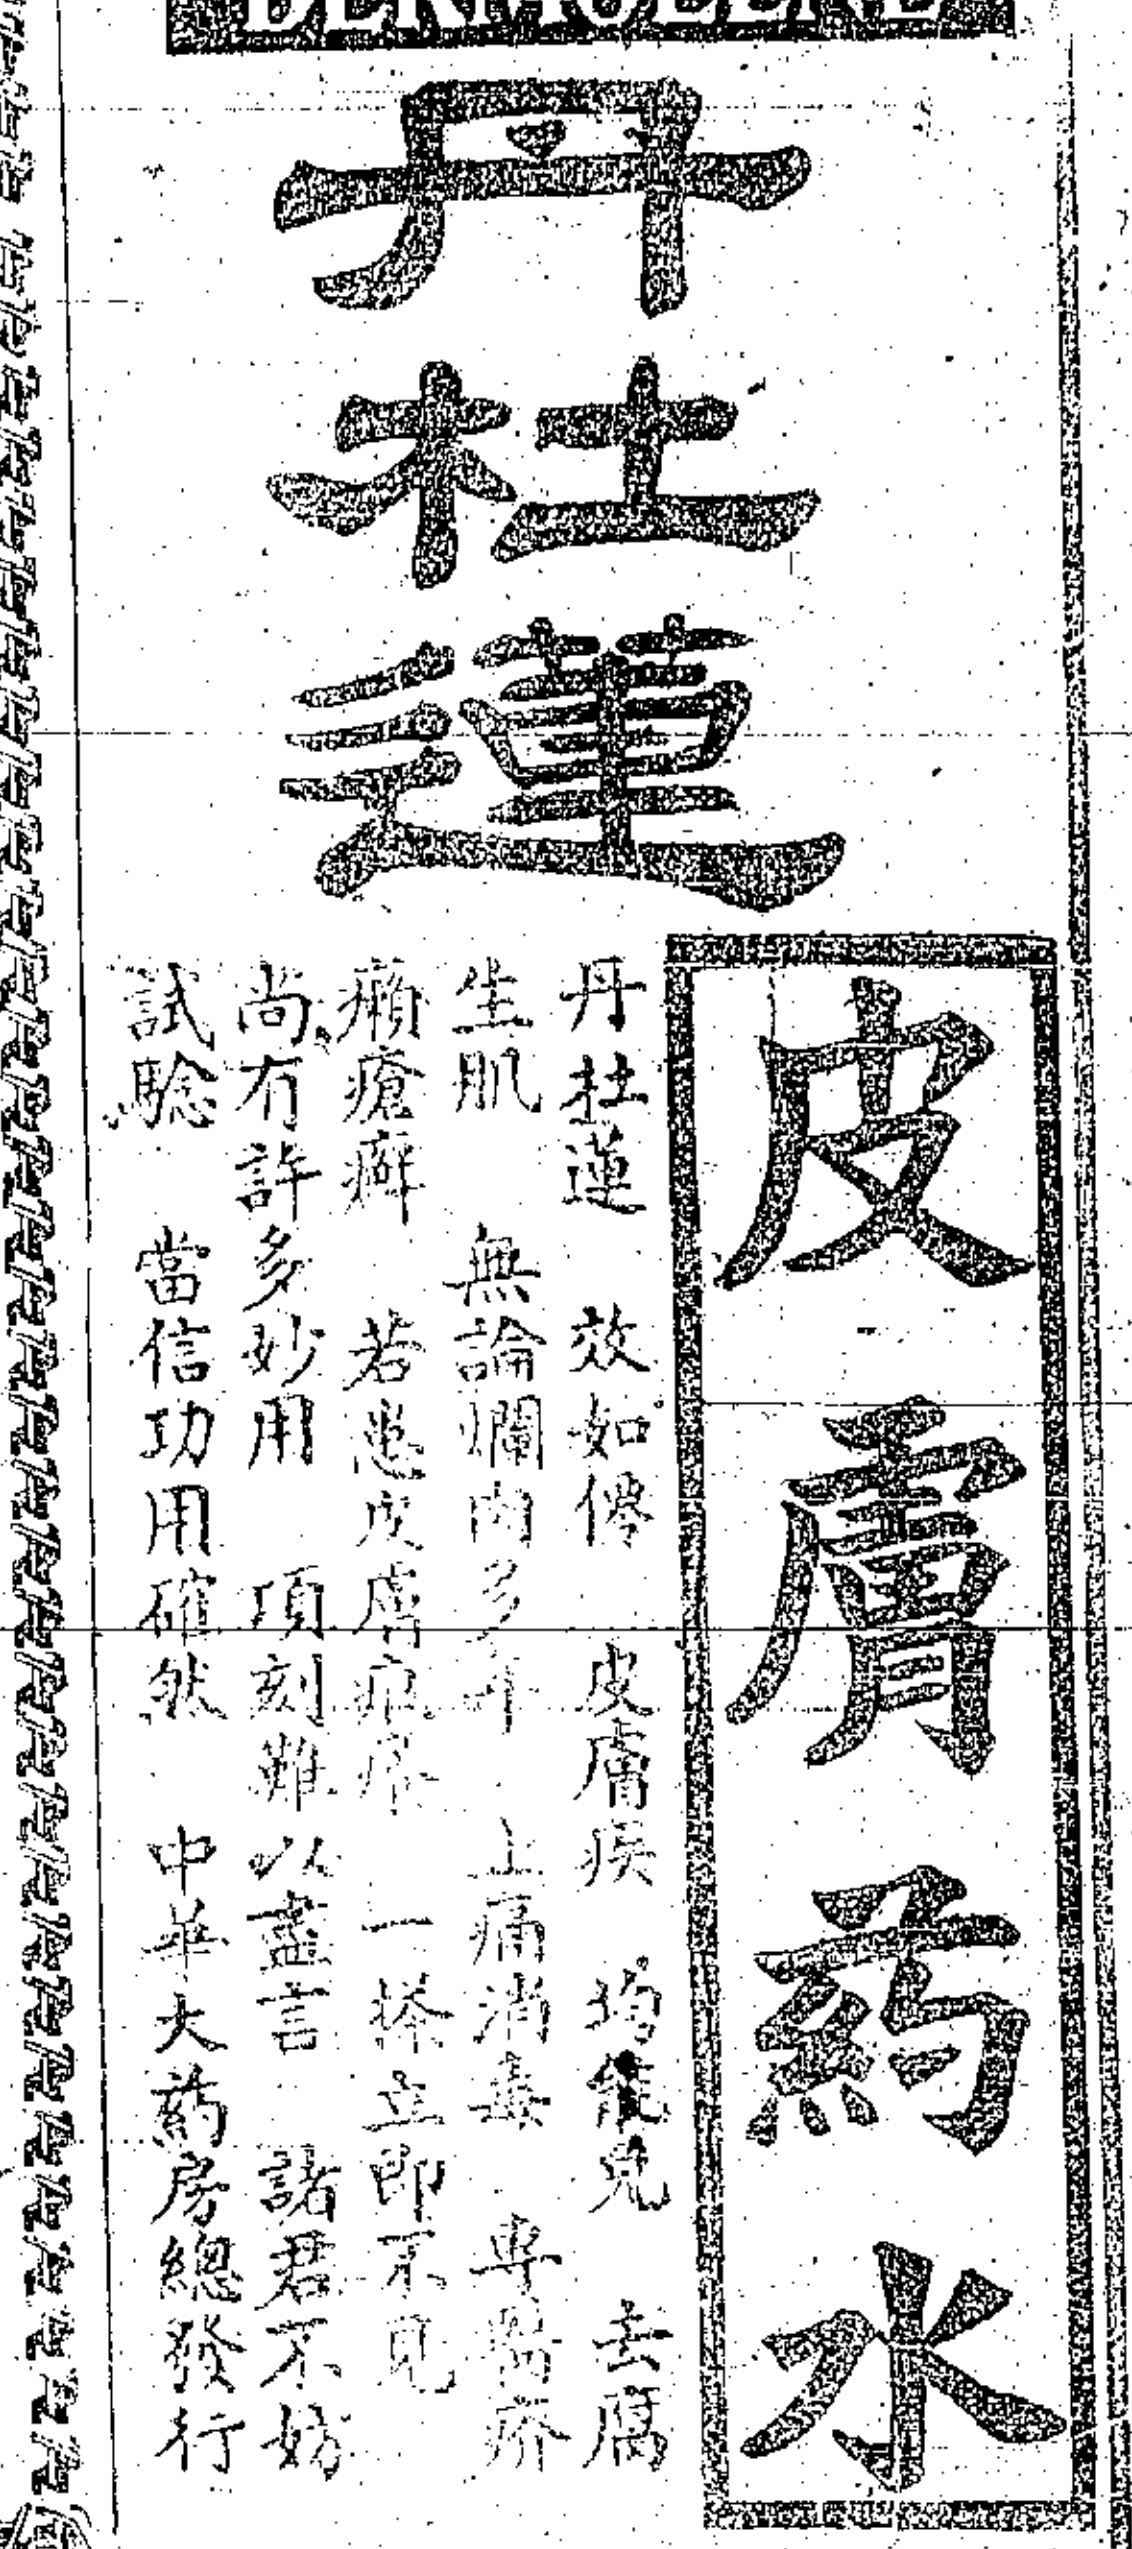 丹杜蓮
皮膚葯水
丹杜蓮 效如僊 皮膚疾 均能免 去腐
生肌 無論爛肉多年 止痛消毒 專醫疥
癩瘡癬 若患皮膚痕痒 一搽立即不見
尚有許多妙用 項刻難以盡言 諸君不妨
試騐 當信功用確然 中華大葯房總發行